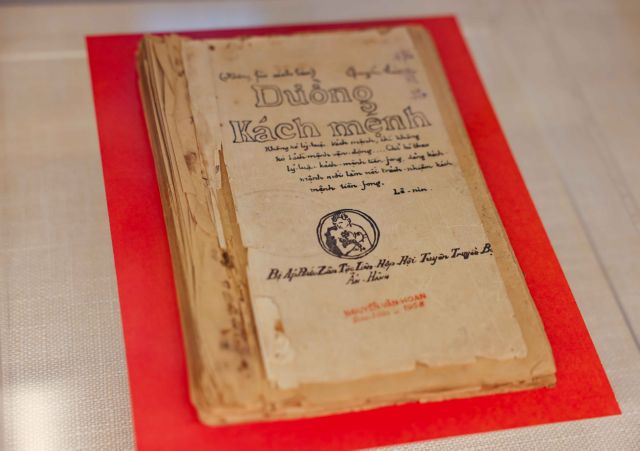 Đường
Kách mệnh
Không có lý luận kách mệnh, thì không
có kách mệnh vận động.... Chỉ có theo
lý luận kách mệnh tiền fong, đảng kách
mệnh mới làm nổi trách nhiệm kách
mệnh tiền fong.
Lê-nin.
Bị Áp Bức Zân Tộc Liên Hợp Hội Tuyên Truyền Bộ
Ấn Hành
NGUYỄN VĂN HOAN